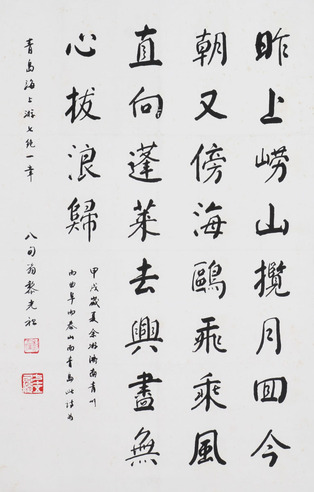 昨上嶗山攬月回今
朝又傍海鷗飛乘風
直向蓬萊去興盡無
心拔浪歸
甲戌歲夏余游濟南青川
而曲阜而泰山而青島此詩為
青島海上游七絕一章
八旬翁黎光祖